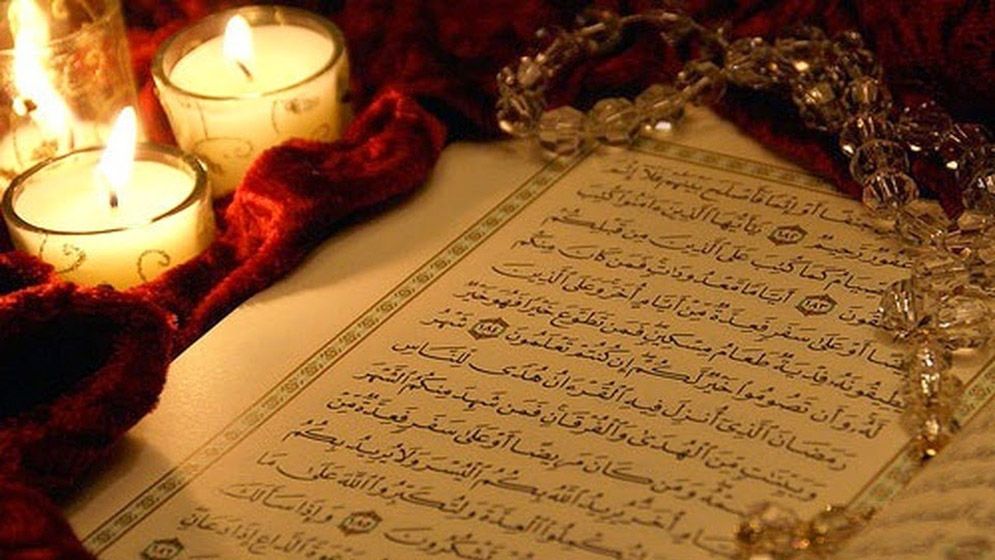 أَوْ إِثْمًا فَأَصْلَحَ بَيْنَهُمْ فَلَآ إِثْمَ
غَفُورٌ رَّحِيمٌ ١٨٢ يَٰٓأَيُّهَا ٱلَّذِينَ ءَامَنُوا۟ كُتِبَ
ٱلصِّيَامُ كَمَا كُتِبَ عَلَى ٱلَّذِينَ مِن قَبْلِكُمْ
١٨٣ أَيَّامًا مَّعْدُودَٰتٍ فَمَن كَانَ مِنكُم
أَوْ عَلَىٰ سَفَرٍ فَعِدَّةٌ مِّنْ أَيَّامٍ أُخَرَ وَعَلَى ٱلَّذِينَ
يُطِيقُونَهُۥ فِدْيَةٌ طَعَامُ مِسْكِينٍ فَمَن تَطَوَّعَ خَيْرًا فَهُوَ خَيْرٌ
لَّهُۥ وَأَن تَصُومُوا۟ خَيْرٌ لَّكُمْ إِن كُنتُمْ تَعْلَمُونَ ١٨٤ شَهْرُ
رَمَضَانَ ٱلَّذِىٓ أُنزِلَ فِيهِ ٱلْقُرْءَانُ هُدًى لِّلنَّاسِ
وَبَيِّنَٰتٍ مِّنَ ٱلْهُدَىٰ وَٱلْفُرْقَانِ فَمَن شَهِدَ مِنكُمُ ٱلشَّهْرَ
وَمَن كَانَ مَرِيضًا أَوْ عَلَىٰ سَفَرٍ فَعِدَّةٌ مِّنْ
أُخَرَ يُرِيدُ ٱللَّهُ بِكُمُ ٱلْيُسْرَ وَلَا يُرِيدُ بِكُمُ
وَلِتُكْمِلُوا۟ ٱلْعِدَّةَ وَلِتُكَبِّرُوا۟ ٱللَّهَ عَلَىٰ مَا
تَشْكُرُونَ ١٨٥ وَإِذَا سَأَلَكَ
دَعْوَةَ ٱلدَّاعِ إِذَا دَعَانِ